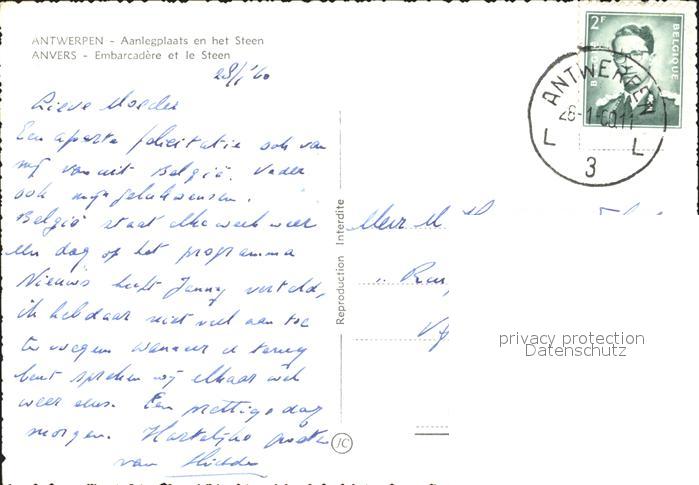 ANTWERPEN - Aanlegplaats en het Steen
ANVERS - Embarcadère et le Steen
28/1 '60
Lieve Moeder
Een aparte felicitatie ook van
mij vanuit België. Vader
ook mijn gelukwensen.
België staat elke week weer
een dag op het programma
Nieuws heeft Janny verteld,
ik heb daar niet veel aan toe
te voegen wanneer u terug
bent spreken wij elkaar wel
weer eens. Een prettige dag
morgen. Hartelijke groeten
van
Reproduction Interdite
JC
2F
BELGIQUE
ANTWERPEN
28-1-60.11
L L
3
Mevr
privacy protection
Datenschutz